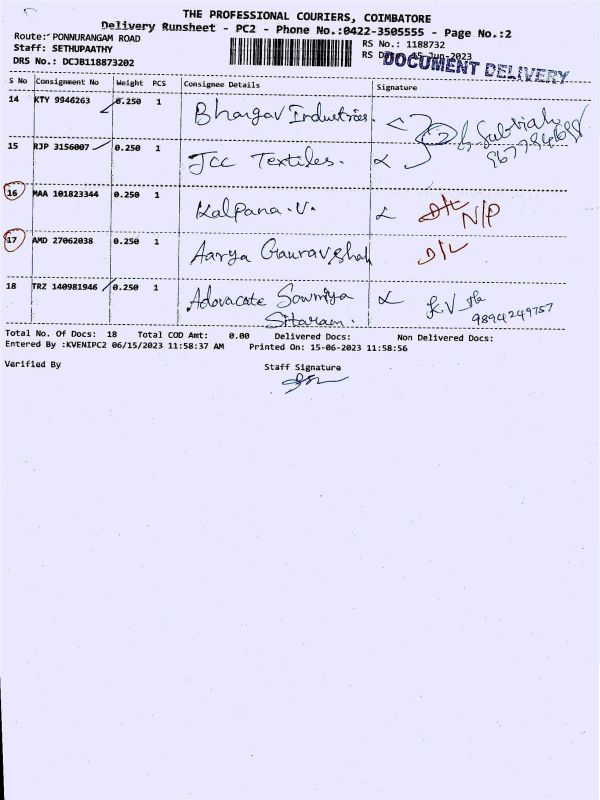 THE PROFESSIONAL COURIERS, COIMBATORE
Delivery Runsheet - PC2 - Phone No.:0422-3505555 - Page No.:2
Route: PONNURANGAM ROAD
RS No.: 1188732
Staff: SETHUPAATHY
RS D 15-Jun-2023
DOCUMENT DELIVERY
DRS No.: DCJB118873202
S No Consignment No Weight PCS Consignee Details Signature
14 KTY 9946263 0.250 1 Bhargav Industries.
15 RJP 3156007 0.250 1 Jcc Textiles.
16 MAA 101823344 0.250 1 Kalpana.V. D/L N/P
17 AMD 27062038 0.250 1 Aarya Gaurav Shah D/L
18 TRZ 140981946 0.250 1 Adovacate Sowmiya K.V
Sitaram. 9894249757
Total No. Of Docs: 18 Total COD Amt: 0.00 Delivered Docs: Non Delivered Docs:
Entered By :KVENIPC2 06/15/2023 11:58:37 AM Printed On: 15-06-2023 11:58:56
Verified By Staff Signature